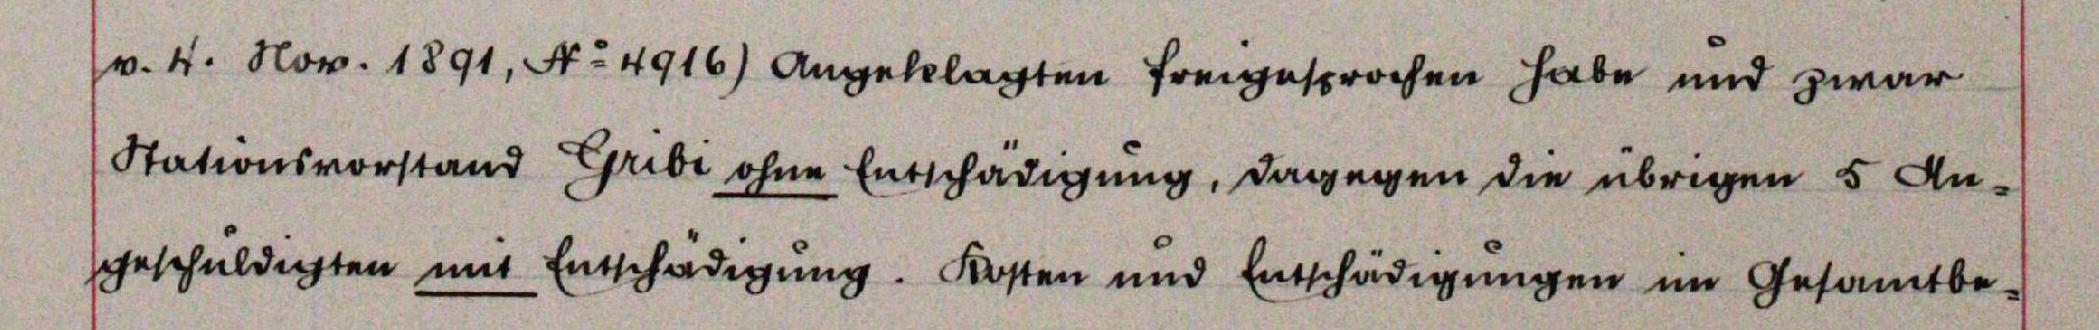 v. 4. Nov. 1891, No 4916) Angeklagten freigesprochen habe und zwar
Stationsvorstand Gribi ohne Entschädigung, dagegen die übrigen 5 An-
geschuldigten mit Entschädigung. Kosten und Entschädigungen im Gesamtbe-